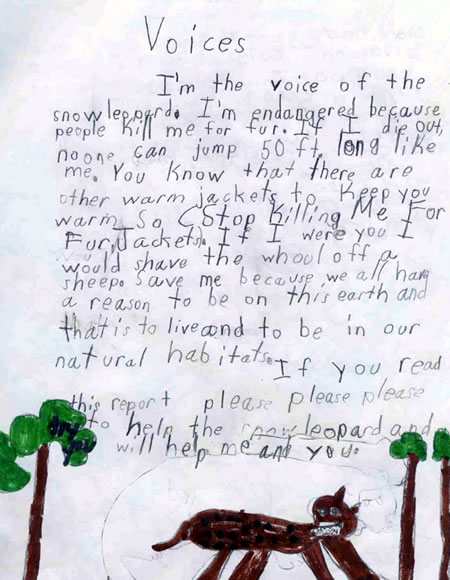 Voices
I'm the voice of the
snow leopard. I'm endangered because
people kill me for fur. If I die out,
no one can jump 50 ft. long like
me. You know that there are
other warm jackets to keep you
warm. So Stop Killing Me For
Fur Jackets. If I were you I
would shave the whoul off a
sheep. Save me because we all have
a reason to be on this earth and
that is to live and to be in our
natural habitats. If you read
this report please please please
try to help the snow leopard and
you will help me and you.